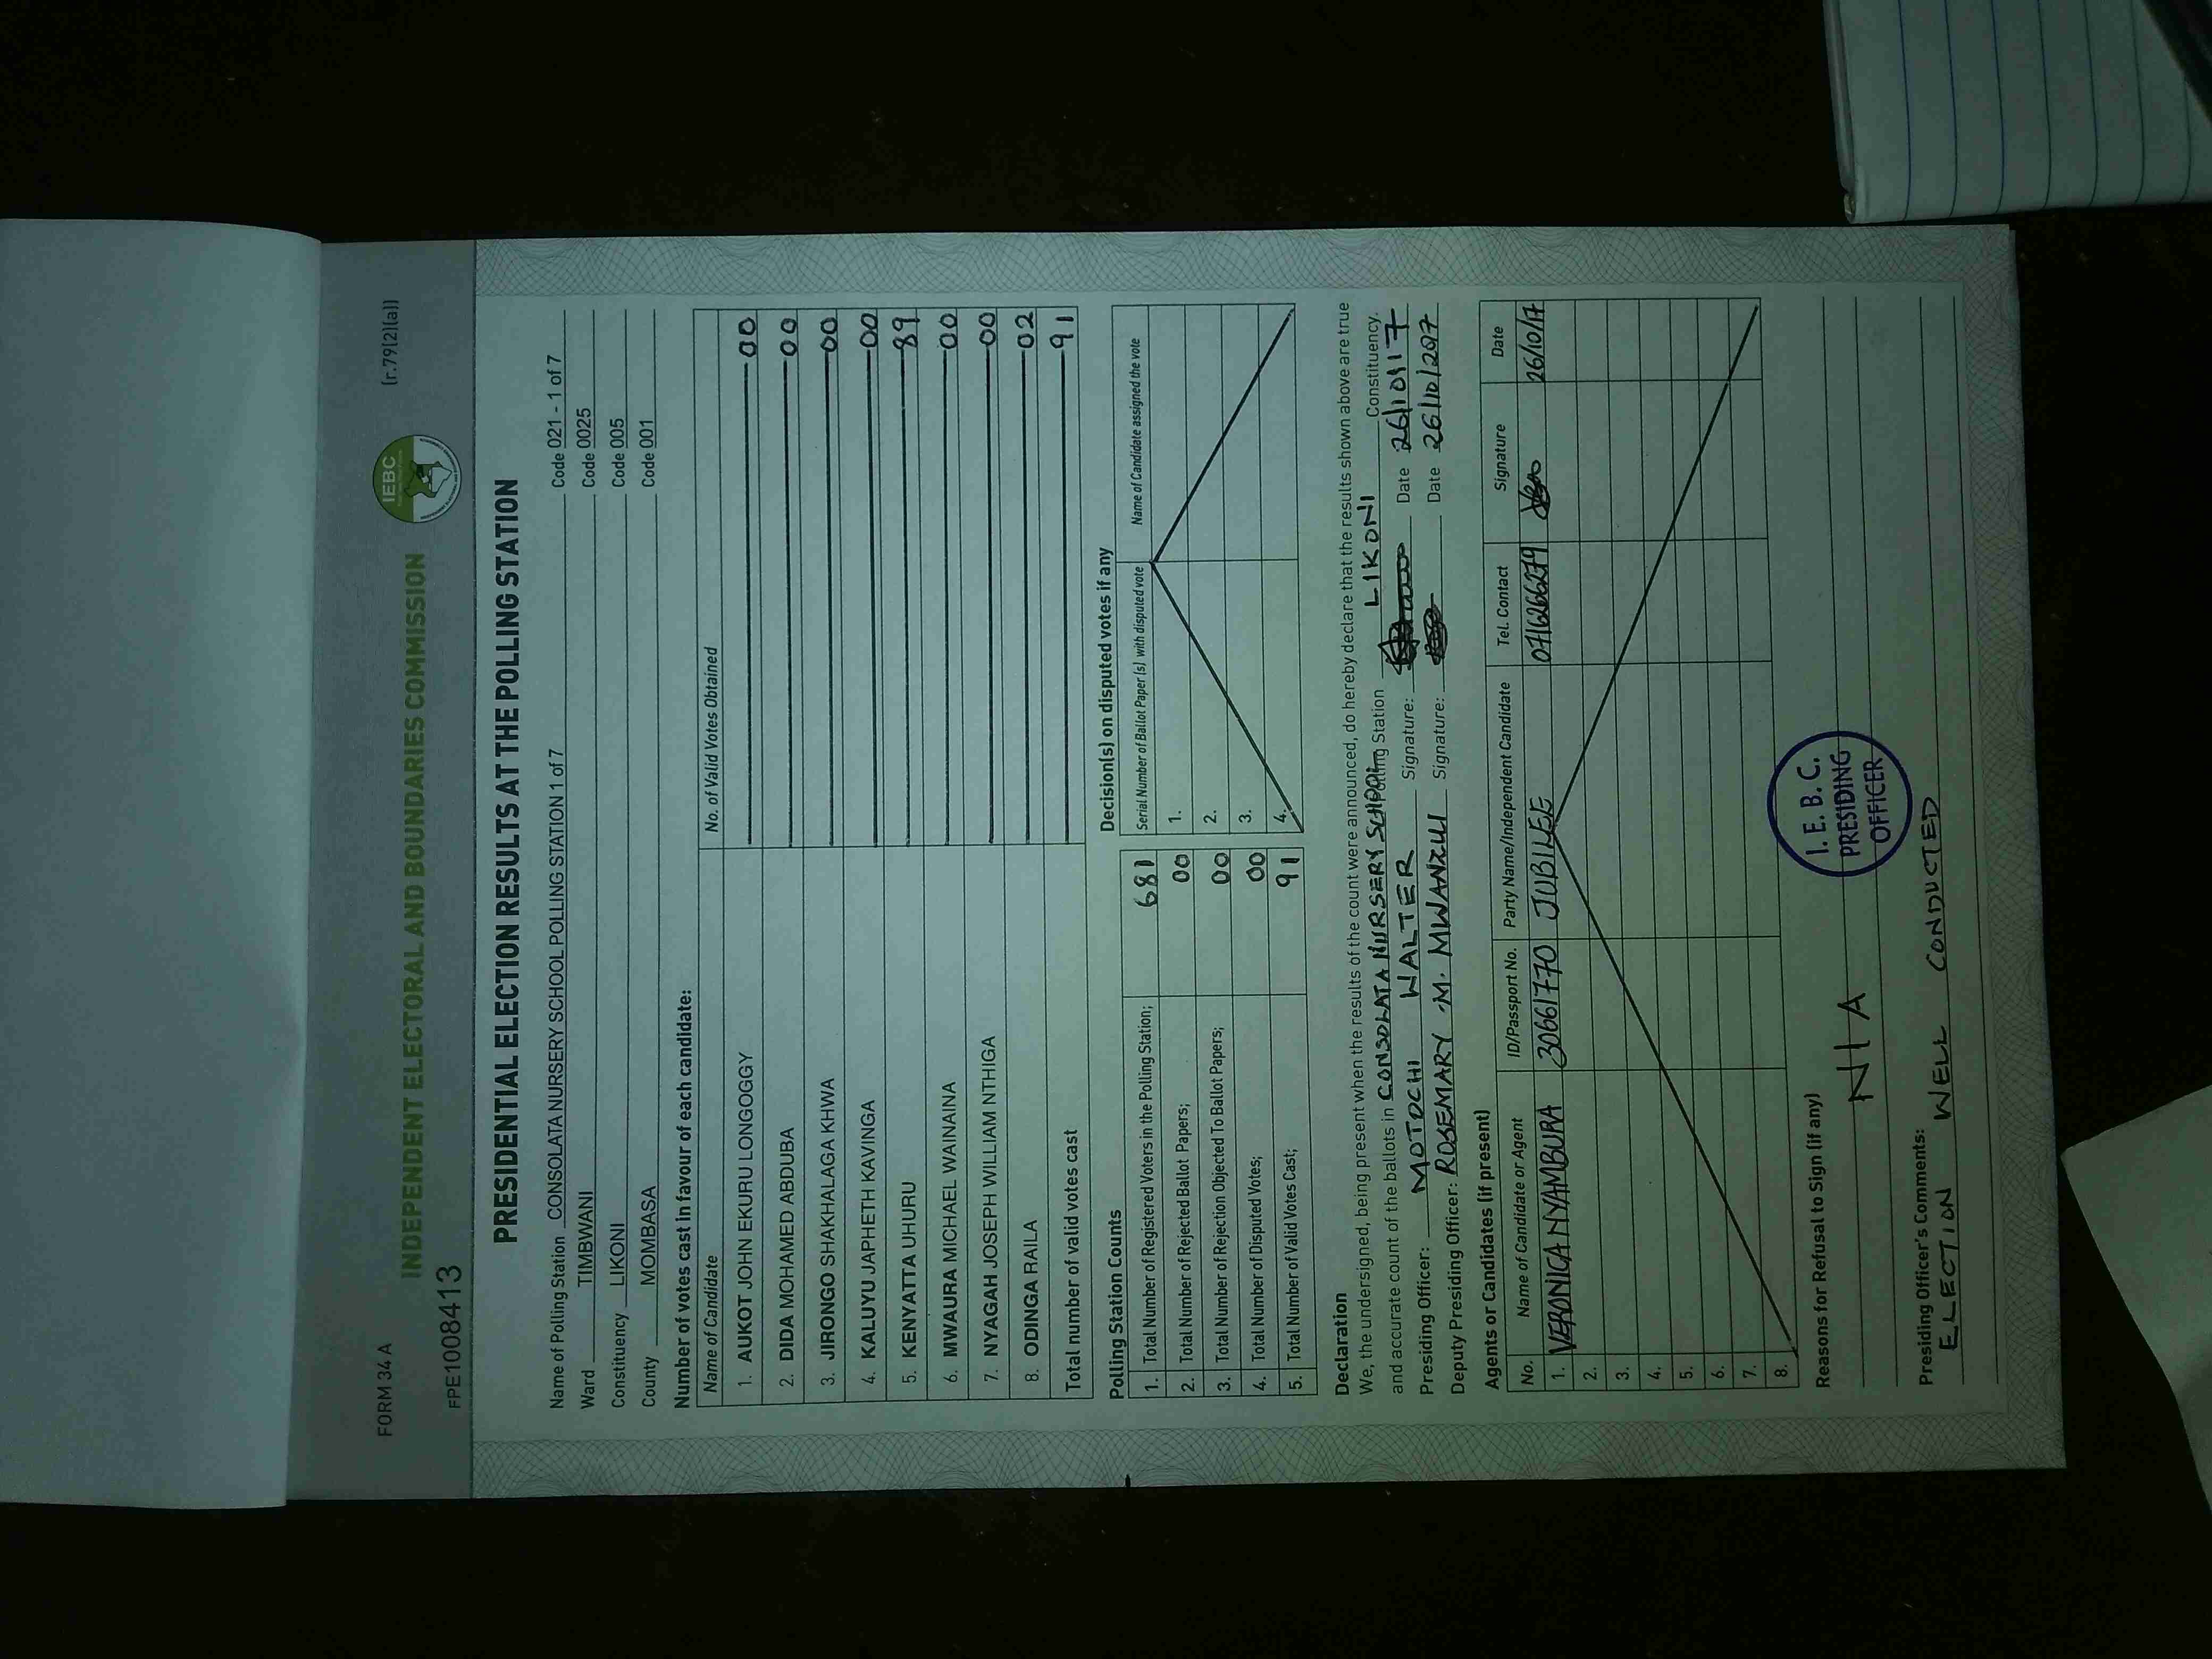 FORM 34 A
(r.79(2)(a))
INDEPENDENT ELECTORAL AND BOUNDARIES COMMISSION
IEBC
FPE1008413
PRESIDENTIAL ELECTION RESULTS AT THE POLLING STATION
Name of Polling Station CONSOLATA NURSERY SCHOOL POLLING STATION 1 of 7 Code 021 - 1 of 7
Ward TIMBWANI Code 0025
Constituency LIKONI Code 005
County MOMBASA Code 001
Number of votes cast in favour of each candidate:
Name of Candidate No. of Valid Votes Obtained
1. AUKOT JOHN EKURU LONGOGGY 00
2. DIDA MOHAMED ABDUBA 00
3. JIRONGO SHAKHALAGA KHWA 00
4. KALUYU JAPHETH KAVINGA 00
5. KENYATTA UHURU 89
6. MWAURA MICHAEL WAINAINA 00
7. NYAGAH JOSEPH WILLIAM NTHIGA 00
8. ODINGA RAILA 02
Total number of valid votes cast 91
Polling Station Counts
1. Total Number of Registered Voters in the Polling Station; 681
2. Total Number of Rejected Ballot Papers; 00
3. Total Number of Rejection Objected To Ballot Papers; 00
4. Total Number of Disputed Votes; 00
5. Total Number of Valid Votes Cast; 91
Decision(s) on disputed votes if any
Serial Number of Ballot Paper (s) with disputed vote Name of Candidate assigned the vote
1.
2.
3.
4.
Declaration
We, the undersigned, being present when the results of the count were announced, do hereby declare that the results shown above are true
and accurate count of the ballots in CONSOLATA NURSERY SCHOOL Polling Station LIKONI Constituency.
Presiding Officer: MOTOCHI WALTER Signature: Date 26/10/17
Deputy Presiding Officer: ROSEMARY M. MWANZUI Signature: Date 26/10/2017
Agents or Candidates (if present)
No. Name of Candidate or Agent ID/Passport No. Party Name/Independent Candidate Tel. Contact Signature Date
1. VERONICA NYAMBURA 30661770 JUBILEE 0716266279 26/10/17
2.
3.
4.
5.
6.
7.
8.
Reasons for Refusal to Sign (if any)
N/A
I. E. B. C.
PRESIDING
OFFICER
Presiding Officer's Comments:
ELECTION WELL CONDUCTED